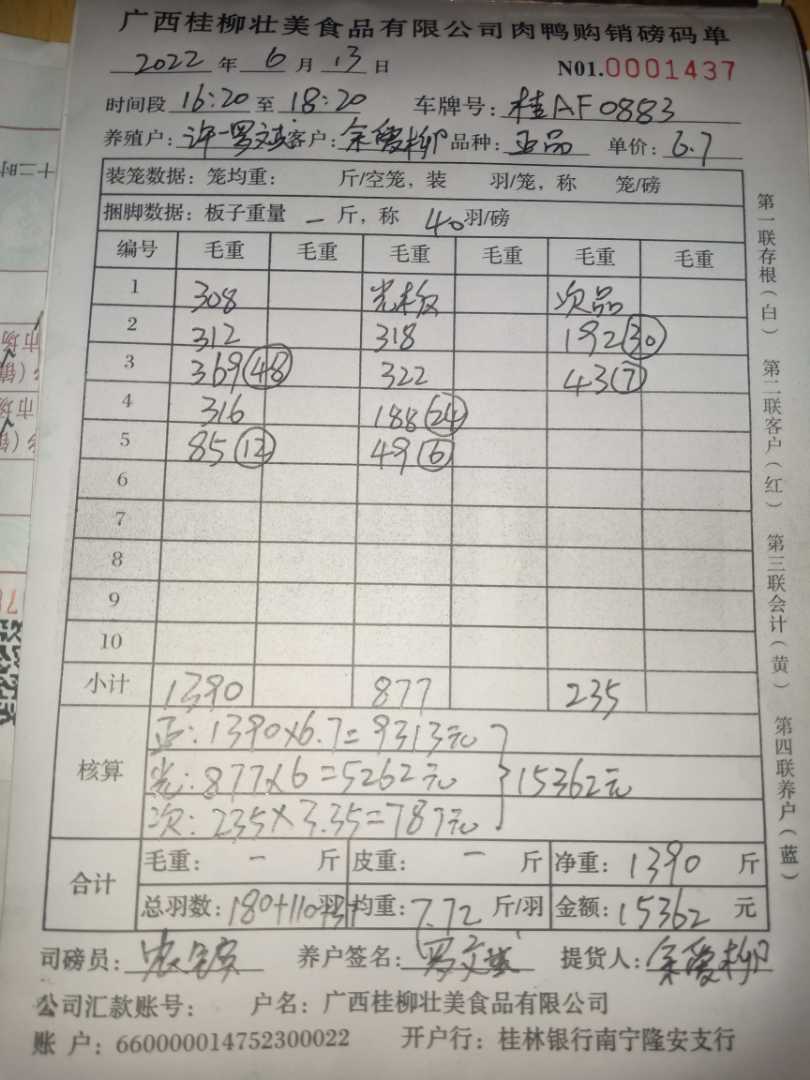 广西桂柳壮美食品有限公司肉鸭购销磅码单
2022 年 6 月 13 日 N01.0001437
时间段 16:20 至 18:20 车牌号: 桂AF0883
养殖户: 许一罗文 客户: 余 柳 品种: 正品 单价: 6.7
装笼数据: 笼均重: 斤/空笼, 装 羽/笼, 称 笼/磅
捆脚数据: 板子重量 一 斤, 称 40 羽/磅
编号 毛重 毛重 毛重 毛重 毛重 毛重
1 308 光板 次品
2 312 318 192 30
3 369 48 322 43 7
4 316 188 24
5 85 12 49 6
6
7
8
9
10
小计 1390 877 235
核算
正: 1390×6.7=9313元
光: 877×6=5262元 } 15362元
次: 235×3.35=787元
合计
毛重: 一 斤 皮重: 一 斤 净重: 1390 斤
总羽数: 180+110+37 羽 均重: 7.72 斤/羽 金额: 15362 元
司磅员: 养户签名: 罗文 提货人: 余 柳
公司汇款账号: 户名: 广西桂柳壮美食品有限公司
账 户: 660000014752300022 开户行: 桂林银行南宁隆安支行
第一联存根(白) 第二联客户(红) 第三联会计(黄) 第四联养户(蓝)
十二时